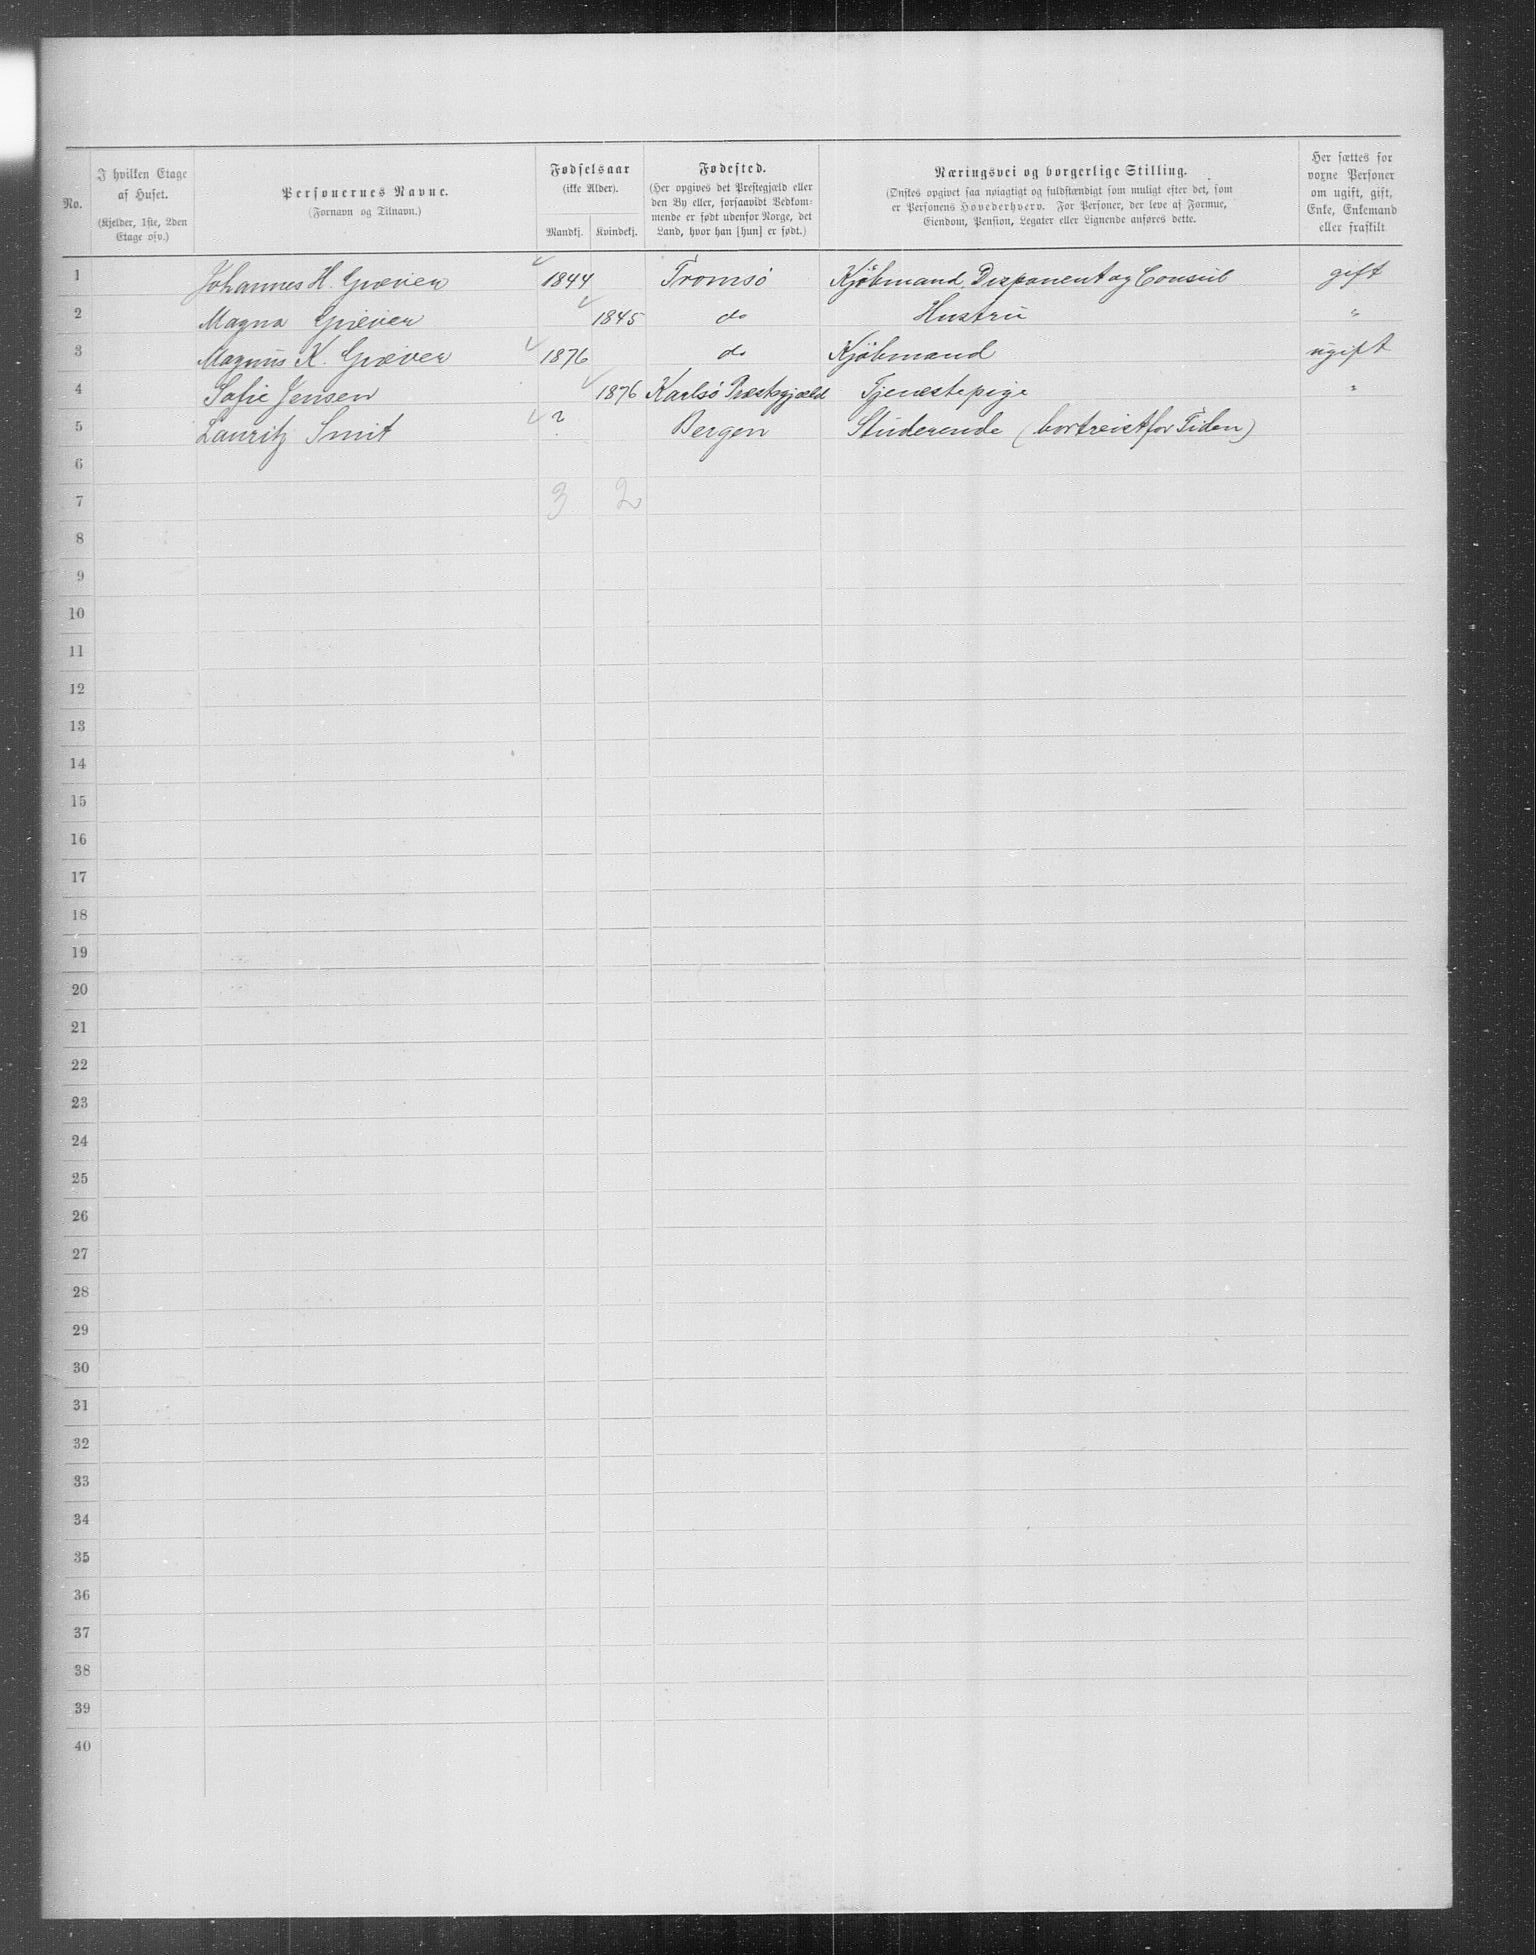 No.
I hvilken Etage af Huset.
(Kjelder, 1ste, 2den Etage osv.)
Personernes Navne.
(Fornavn og Tilnavn.)
Fødselsaar
(ikke Alder).
Mandkj. Kvindekj.
Fødested.
(Her opgives det Prestegjæld eller
den By eller, forsaavidt Vedkom-
mende er født udenfor Norge, det
Land, hvor han [hun] er født.)
Næringsvei og borgerlige Stilling.
(Ønskes opgivet saa nøiagtigt og fuldstændigt som muligt efter det, som
er Personens Hovederhverv. For Personer, der leve af Formue,
Eiendom, Pension, Legater eller Lignende anføres dette.
Her sættes for
voxne Personer
om ugift, gift,
Enke, Enkemand
eller fraskilt
1 Johannes H. Græver 1844 Tromsö Kjöbmand, Disponent og Consul gift
2 Magna Græver 1845 do Hustru "
3 Magnus K. Græver 1876 do Kjöbmand ugift
4 Sofie Jensen 1876 Karlsö Præstegjæld Tjenestepige "
5 Lauritz Smit ? Bergen Studerende (bortreist for Tiden)
6
7 3 2
8
9
10
11
12
13
14
15
16
17
18
19
20
21
22
23
24
25
26
27
28
29
30
31
32
33
34
35
36
37
38
39
40